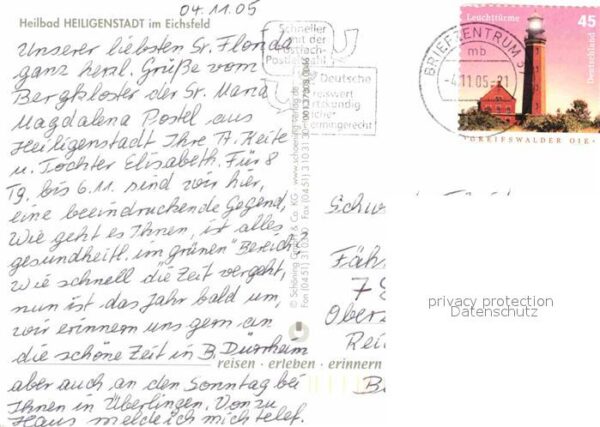 04.11.05
Heilbad HEILIGENSTADT im Eichsfeld
Unserer liebsten Sr. Florida
ganz herzl. Grüße vom
Bergkloster der Sr. Maria
Magdalena Postel aus
Heiligenstadt Ihre A. Heite
u. Tochter Elisabeth. Für 8
Tg. bis 6.11. sind wir hier,
eine beeindruckende Gegend,
Wie geht es Ihnen, ist alles
gesundheitl. im grünen "Bereich?
Wie schnell die Zeit vergeht,
nun ist das Jahr bald um,
wir erinnern uns gern an
die schöne Zeit in B. Dürrheim
aber auch an den Sonntag bei
Ihnen in Überlingen. Von zu
Haus melde ich mich telef.
reisen · erleben · erinnern
© Schöning GmbH & Co. KG · www.schoening-verlag.de
Fon (04 51) 3 10 30 · Fax (04 51) 3 10 31 30
Schneller
Postfach-
Deutsche
BRIEFZENTRUM
mb
-4.11.05-21
Leuchttürme
45
Deutschland
GREIFSWALDER OIE
Fähr
Obers
B
privacy protection
Datenschutz